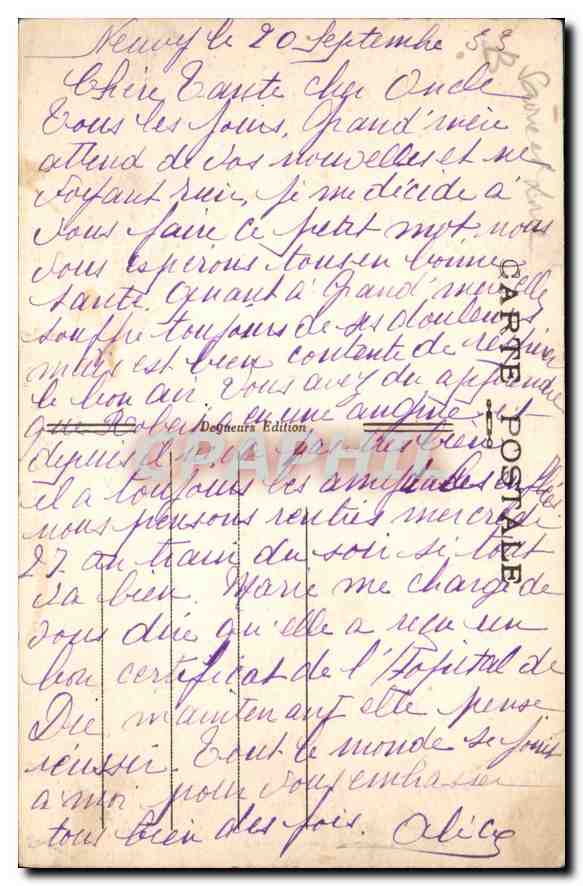 Neuvy le 20 Septembre 33
Chère Tante cher Oncle
Tous les jours, Grand'mère
attend de vos nouvelles et ne
voyant rien, je me décide à
vous faire ce petit mot. nous
vous esperons tous en bonne
santé. Quant à Grand'mere elle
souffre toujours de ses douleurs
mais est bien contente de respirer
le bon air. Vous avez du apprendre
que a eu une angine et
Deqneurs Edition
depuis va pas très bien
il a toujours les amygdales enflées.
nous pensons rentrer mercredi
27 au train du soir si tout
va bien. Marie me charge de
vous dire qu'elle a reçu un
bon certificat de l'Hopital de
maintenant elle pense
réussir. Tout le monde se joint
à moi pour vous embrasser
tous bien des fois. Alice
CARTE POSTALE
CPAPHIL